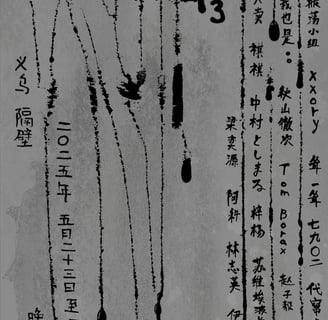 荡小组 xxory 耸一耸 七九〇二 代
我也是 秋山徹次 Tom Borax 赵子毅
棋棋 中村としまる 梓杨 苏维埃
梁奕源 阿科 林志英 伊
二〇二五年 五月二十三日至
义乌 隔壁 晚